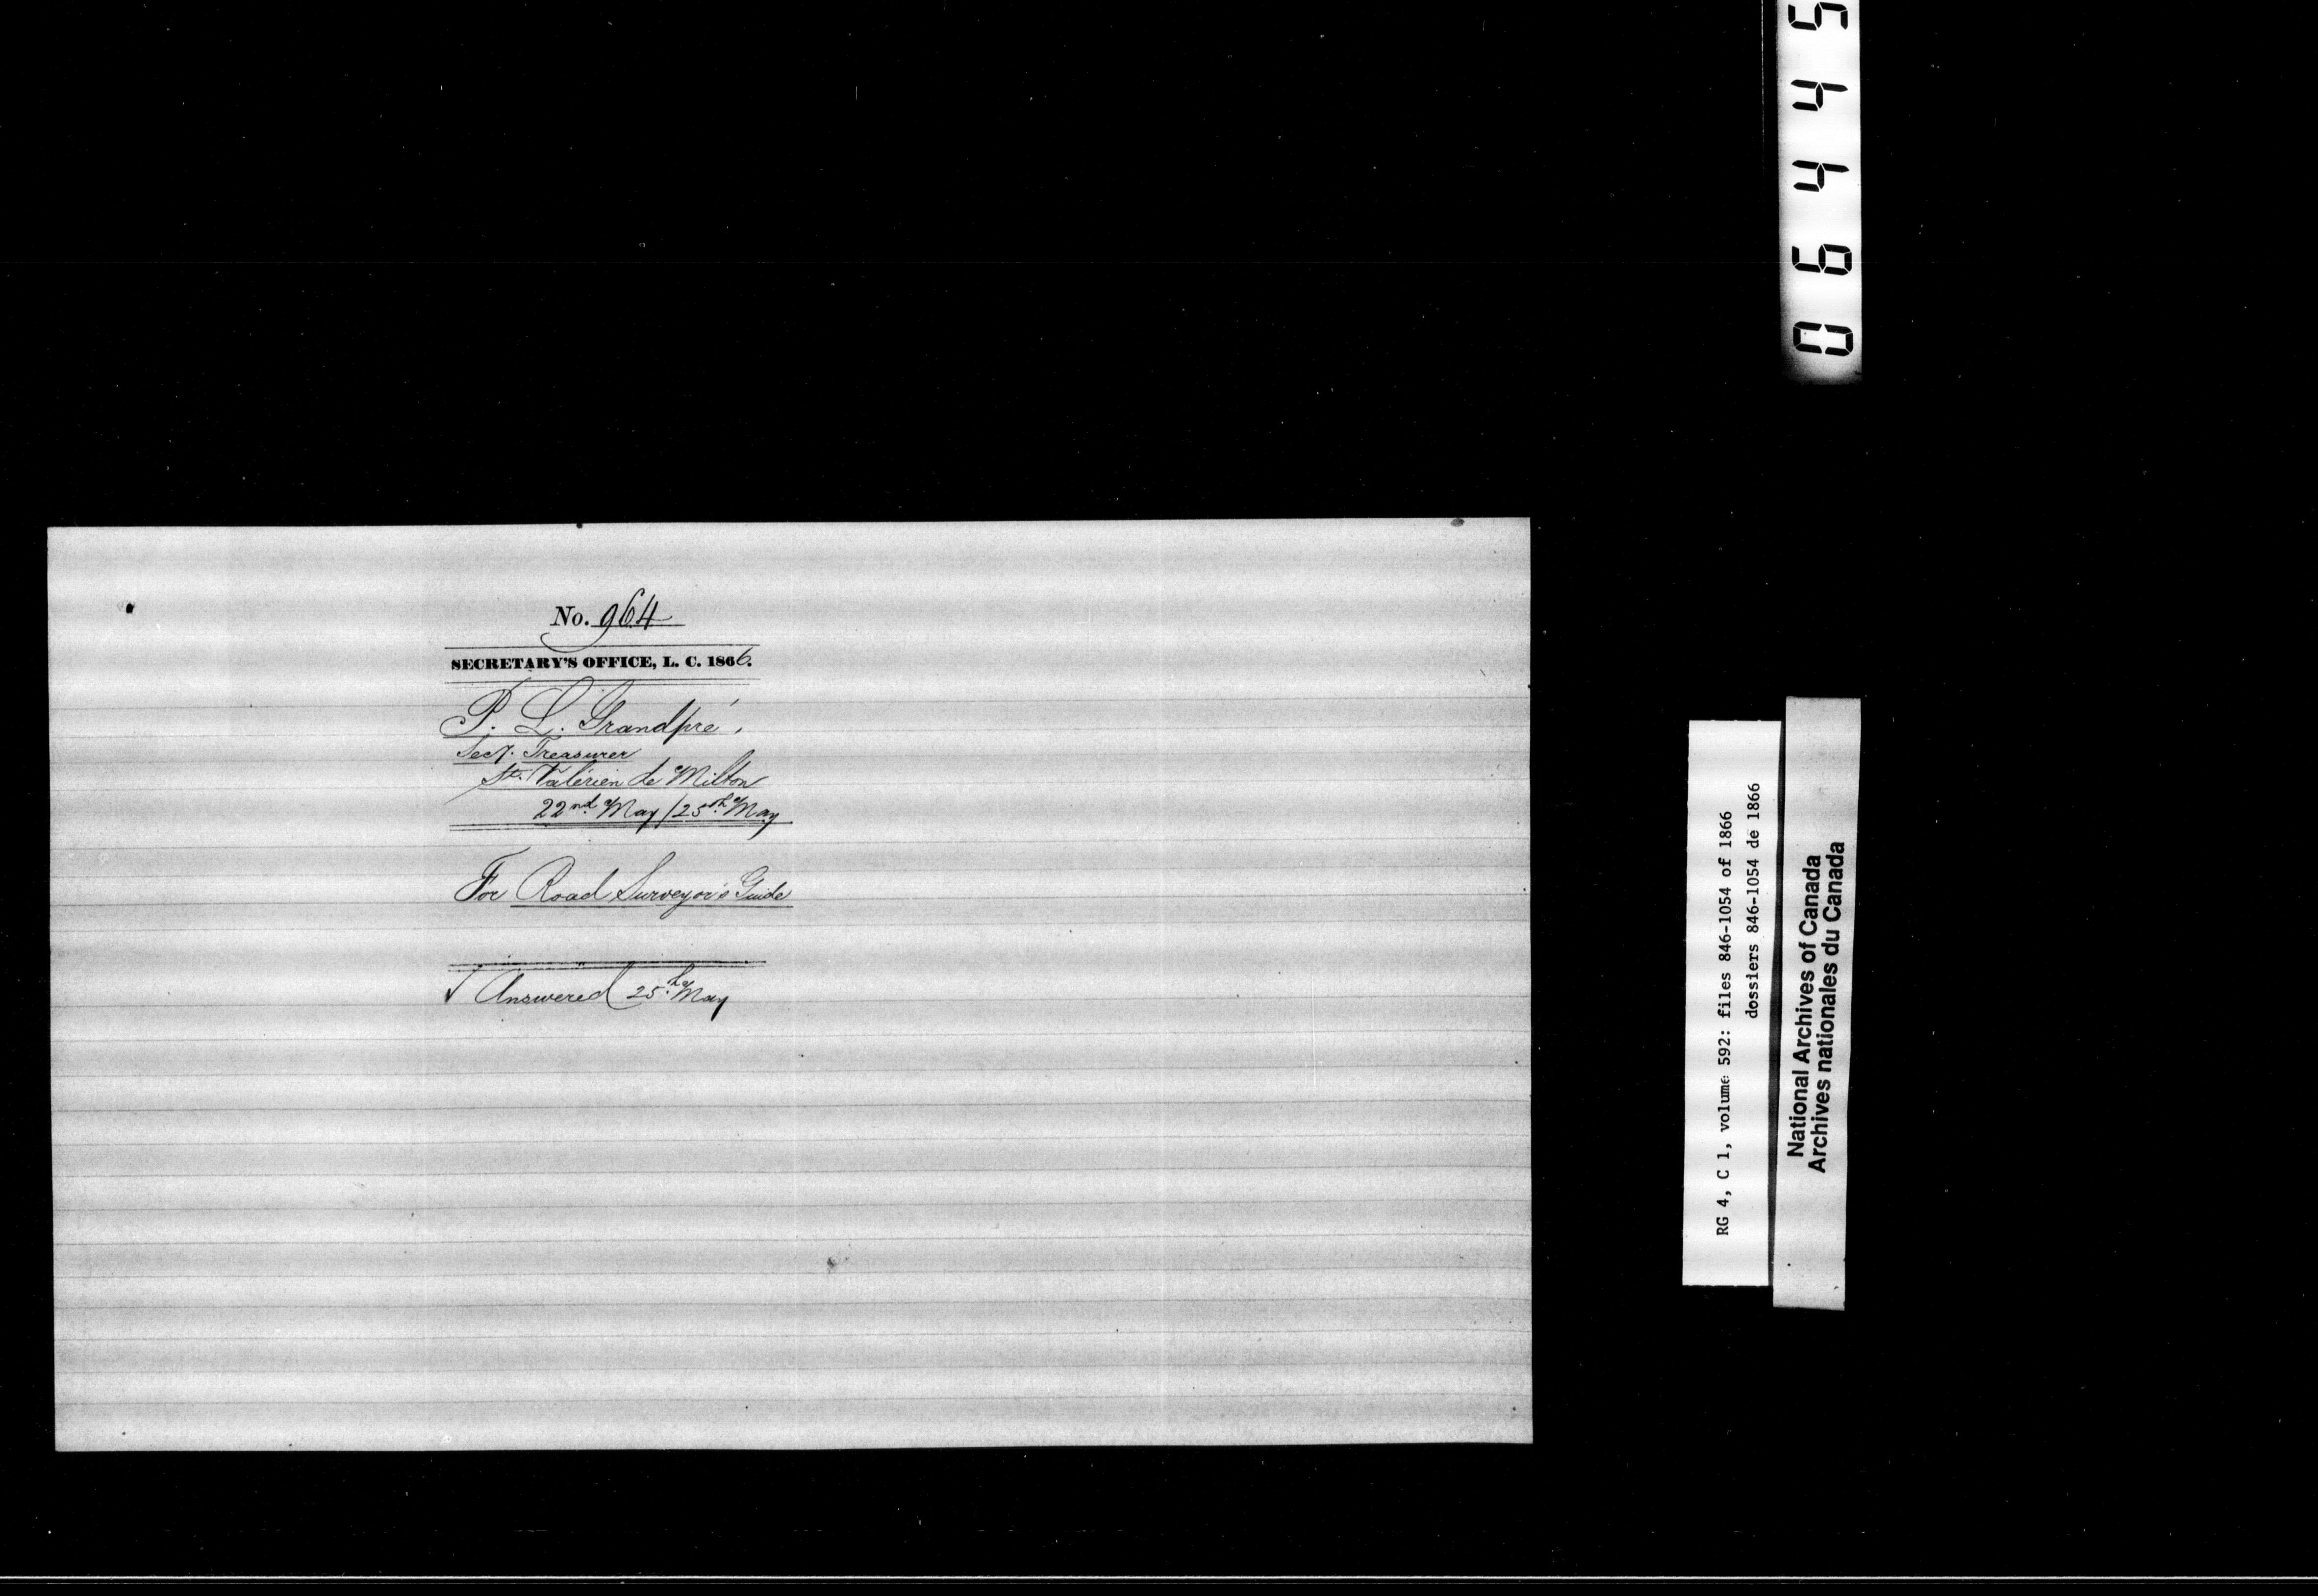 No. 964
SECRETARY'S OFFICE, L. C. 1866.
P. L. Grandpré,
Secy. Treasurer
St. Valérien de Milton
22nd May / 25th May
For Road Surveyor's Guide
✓ Answered 25th May
06445
RG 4, C 1, volume 592: files 846-1054 of 1866
dossiers 846-1054 de 1866
National Archives of Canada
Archives nationales du Canada